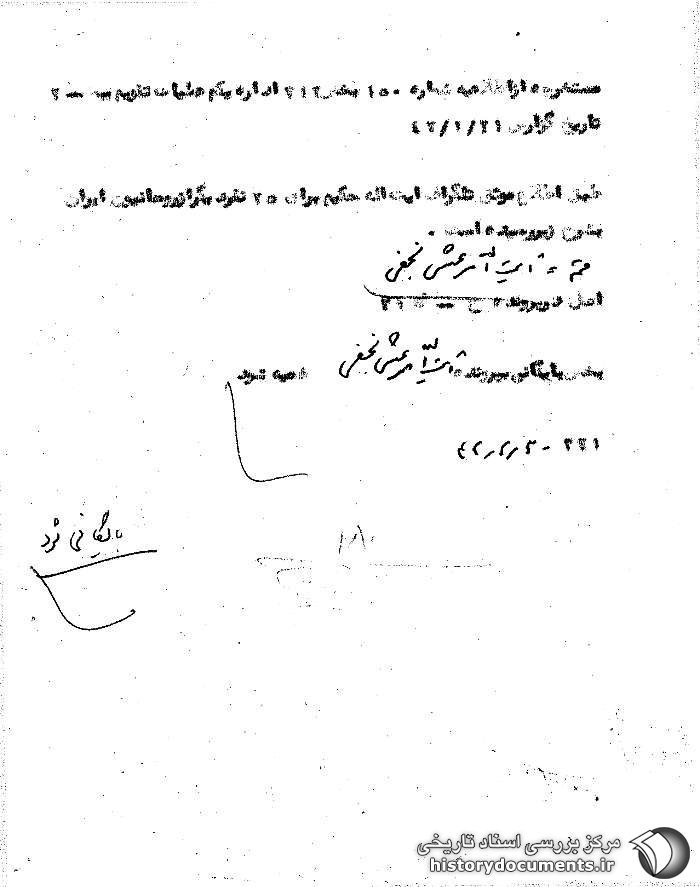 مستخرجه از اطلاعیه شماره ۱۵۰ بخش ۲۱۲ اداره یکم عملیات تقویم ب – ۲
تاریخ گزارش ۴۲/۱/۲۱
طبق اطلاع موثق تلگراف ایت اله حکیم برای ۲۵ نفر دیگر از روحانیون ایران
بشرح زیر رسیده است .
قم = آیت اله مرعشی نجفی
اصل در پرونده ح – ۳۱
بخش بایگانی بپرونده آیت اله مرعشی نجفی ضمیمه شود
۳۲۱ - ۴۲٫۲٫۳
بایگانی شود
۱۸۰
مرکز بررسی اسناد تاریخی
historydocuments.ir